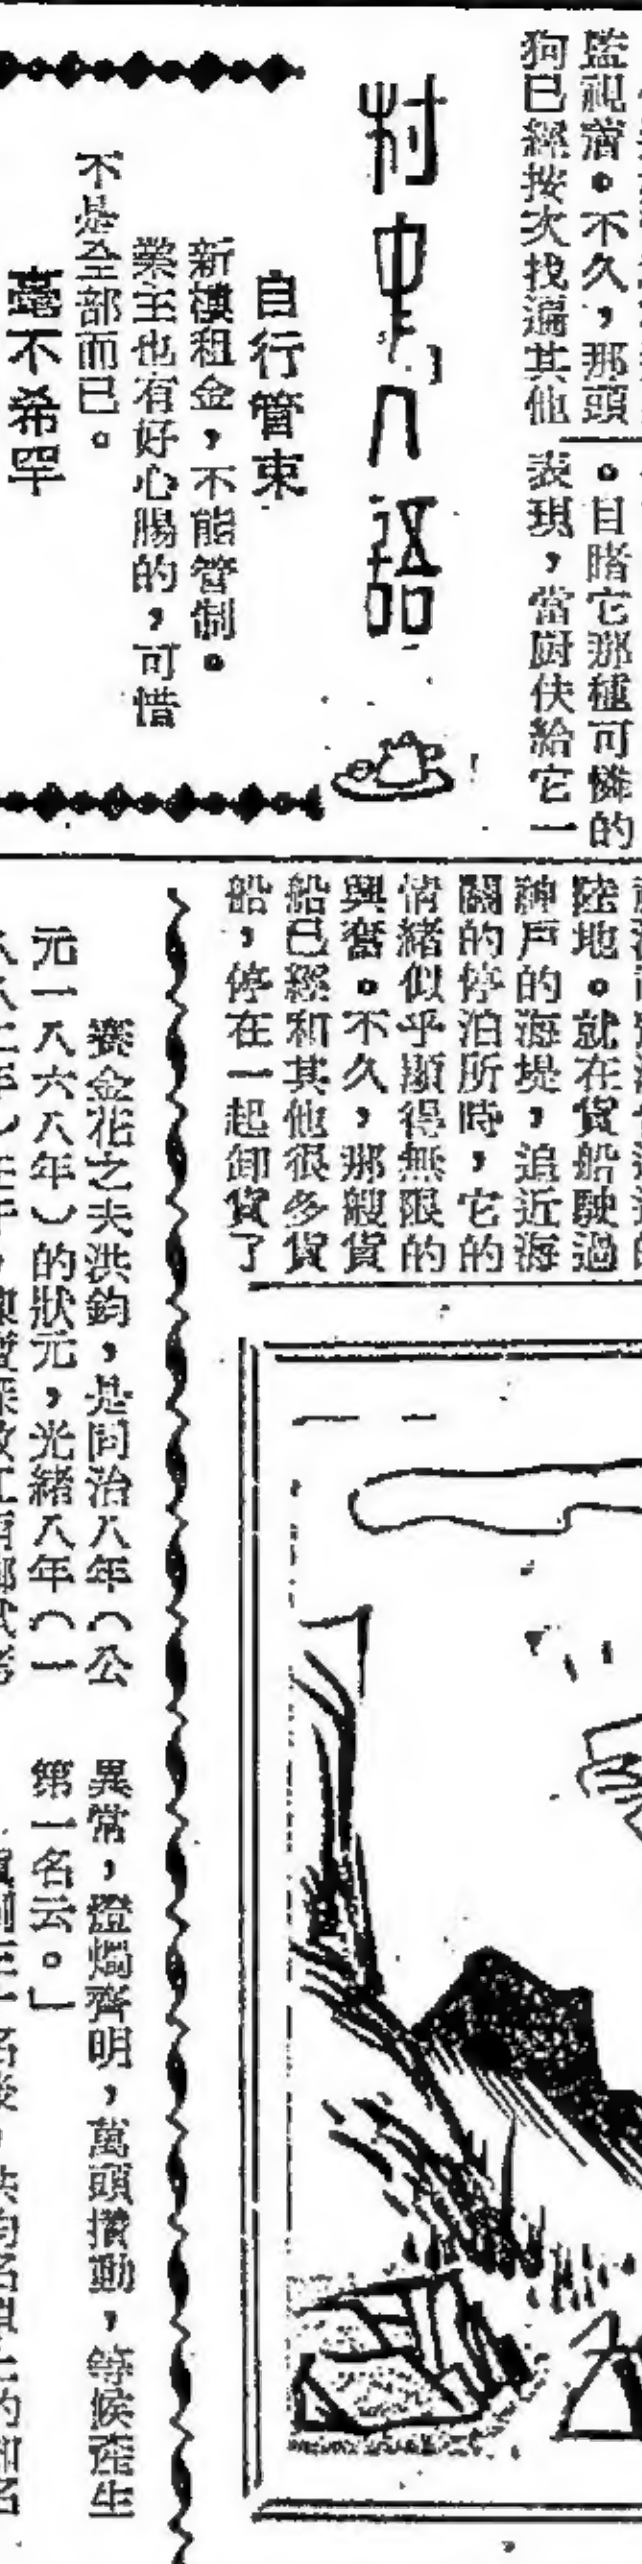 監視着。不久，那頭
狗已經按次找遍其他
。目睹它那種可憐的
表現，當厨伕給它一
村史八語
自行管束
新樓租金，不能管制。
業主也有好心腸的，可惜
不是全部而已。
毫不希罕
陸地。就在貨船駛過
神戶的海堤，追近海
關的停泊所時，它的
情緒似乎顯得無限的
興奮。不久，那艘貨
船已經和其他很多貨
船，停在一起卸貨了
賽金花之夫洪鈞，是同治八年（公
元一八六八年）的狀元，光緒八年（一
異常，燈燭齊明，萬頭攢動，等候產生
第一名云。」